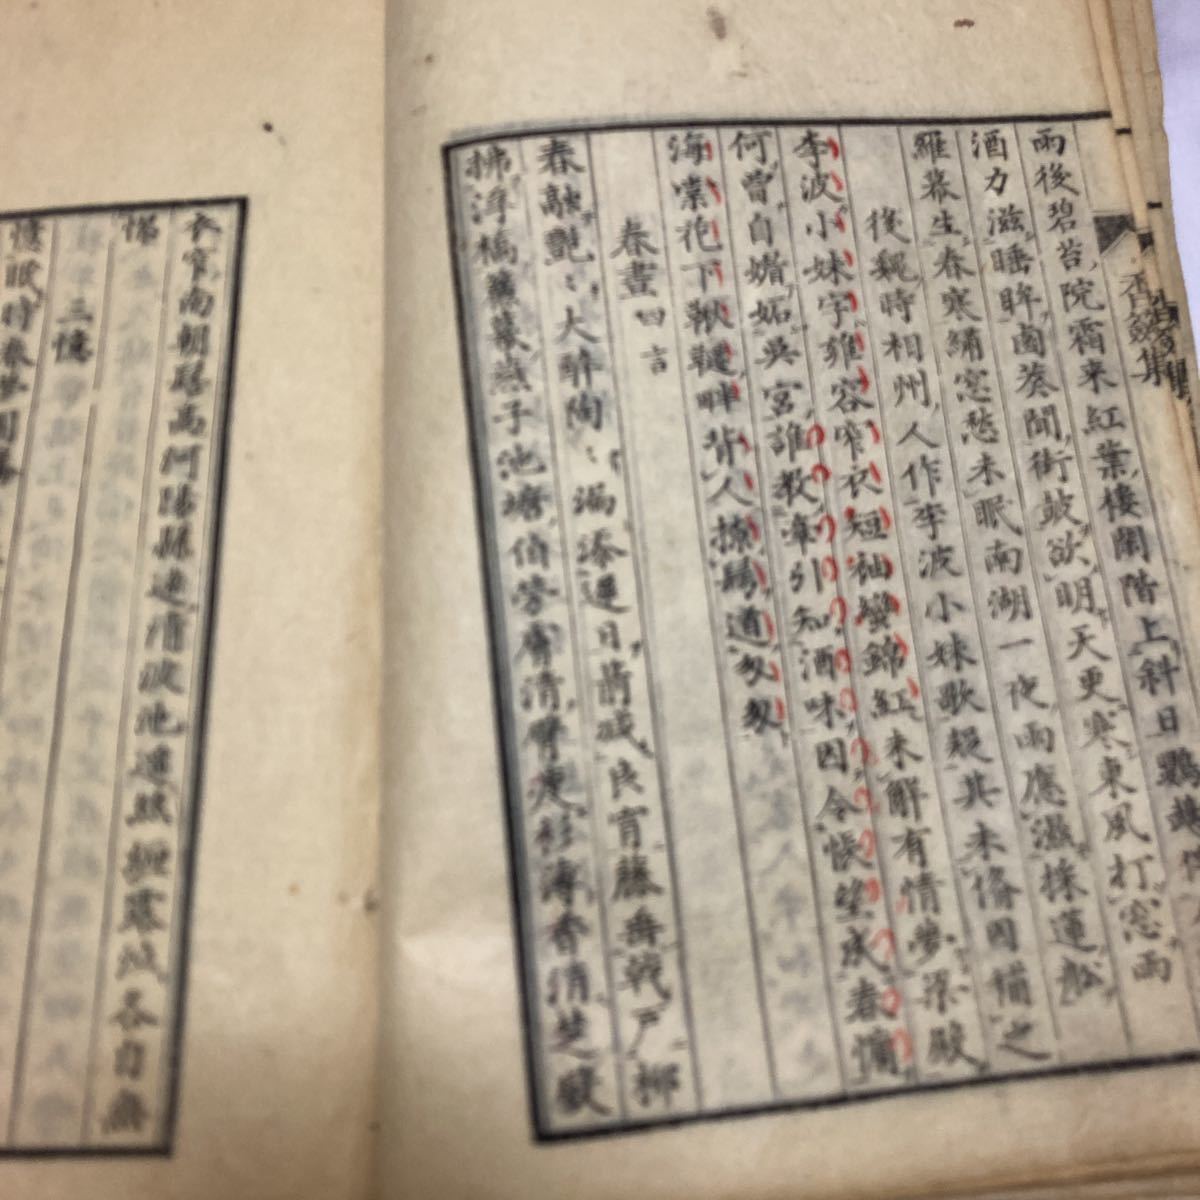 香奩集
雨後碧苔院霜来紅葉樓閑階上斜日鸚鵡
酒力滋睡眸鹵莽聞街鼓欲明天更寒東風打窓雨
羅幕生春寒繡窓愁未眠南湖一夜雨應濕採蓮舩
後魏時相州人作李波小妹歌疑其未備因補之
李波小妹字雍容窄衣短袖蠻錦紅未解有情夢梁殿
何曾自媚妬吳宮誰教牽引知酒味因令悵望成春慵
海棠花下鞦韆畔背人撩鬢道匆匆
春晝 四言
春融艶〻大醉陶〻漏添遲日箭減良宵藤垂戟戶柳
拂浮橋簾幕燕子池塘伯勞膚清臂瘦衫薄香消楚殿
衣窄南朝髻高河陽縣遠清波地遥絲纏露泣各自無
憀
三憶
憶眠時春夢困騰